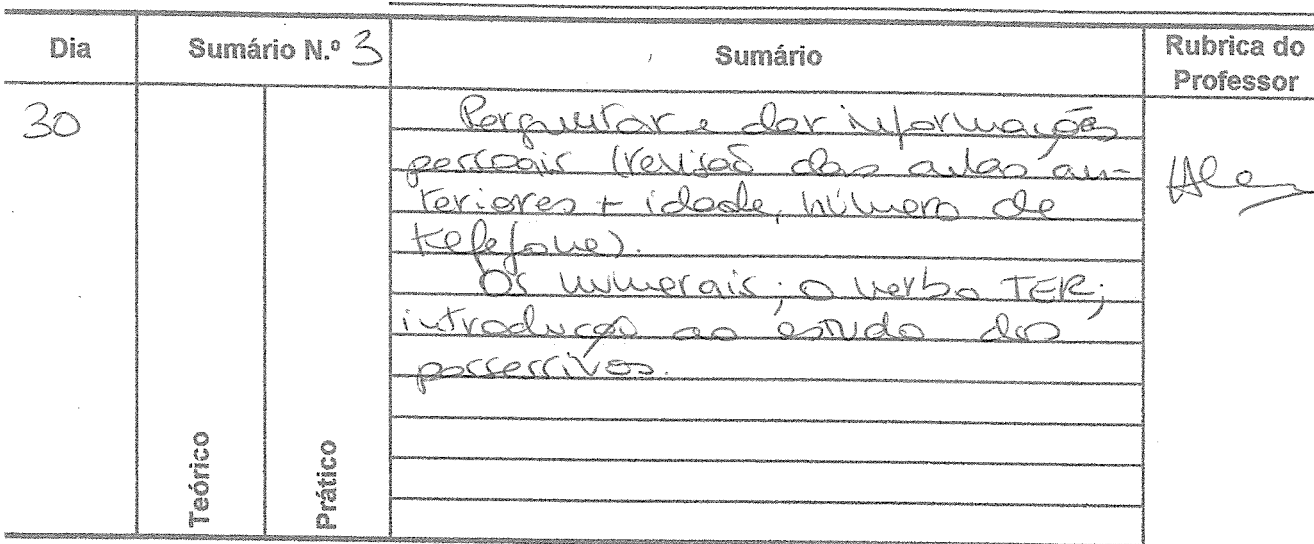 Dia Sumário N.º 3 Sumário Rubrica do Professor
30
Perguntar e dar informações
pessoais (revisão das aulas an-
teriores + idade, número de
telefone).
Os numerais; o verbo TER;
introdução ao estudo dos
possessivos.
Teórico
Prático